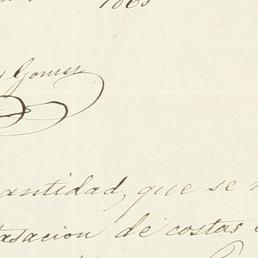 1863
Gomez
antidad, que se
tasacion de costas